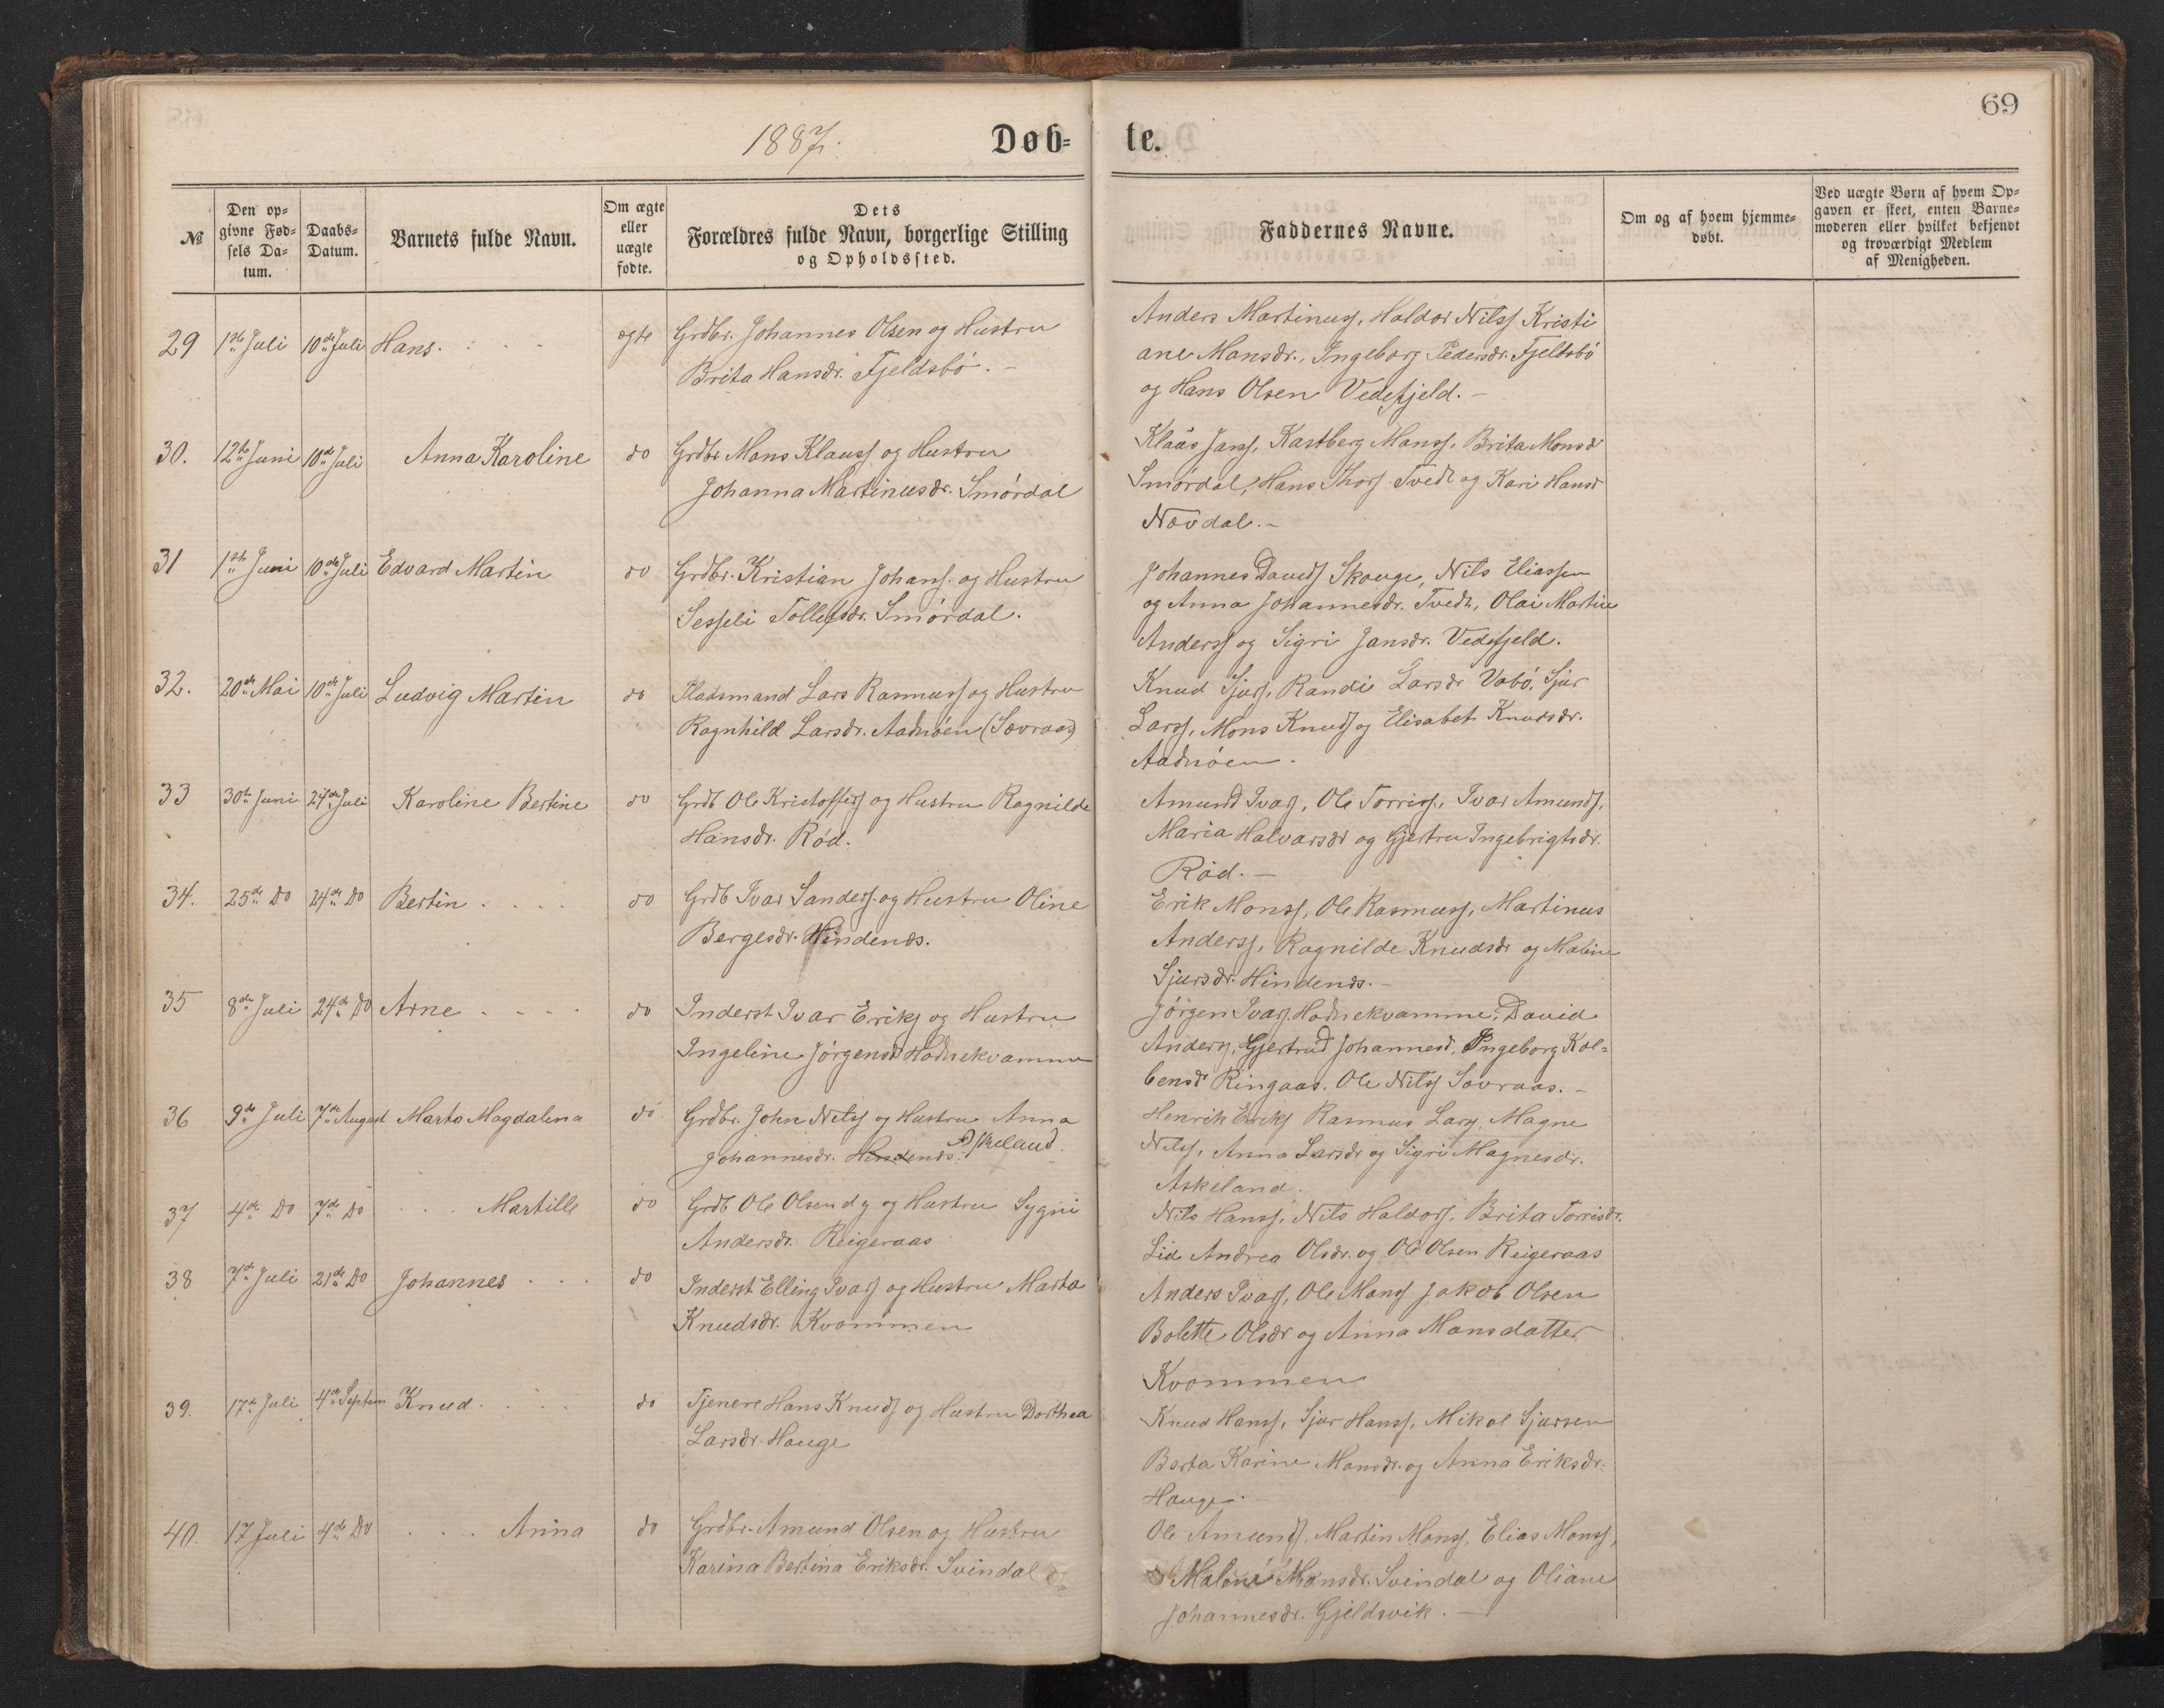 69
1887.
Døb=
te.
№
Den op=
givne Fød=
sels Da=
tum.
Daabs=
Datum.
Barnets fulde Navn.
Om ægte
eller
uægte
fødte.
Dets
Forældres fulde Navn, borgerlige Stilling
og Opholdssted.
Faddernes Navne.
Om og af hvem hjemme=
døbt.
Ved uægte Børn af hvem Op=
gaven er skeet, enten Barne=
moderen eller hvilket bekjendt
og troværdigt Medlem
af Menigheden.
29 1ste Juli 10de Juli Hans. ægte Grdbr. Johannes Olsen og Hustru
Brita Hansdr. Fjeldsbö. -
Anders Martinus, Haldor Nilss Kristi
ane Mansdr., Ingeborg Pedersdr. Fjeldsbö
og Hans Olsen Vedefjeld. -
30. 12te Juni 10de Juli Anna Karoline do Grdbr Mons Klauss og Hustru
Johanna Martinusdr. Smördal
Klaas Janss, Kastberg Monss, Brita Monsd
Smördal, Hans Thors Tvedt og Kari Hansd
Nævdal. -
31 1ste Juni 10de Juli Edvard Martin do Grdbr. Kristian Johans. og Hustru
Sesseli Tollefsdr. Smördal.
Johannes Davids Skouge, Nils Eliassen
og Anna Johannesdr. Tvedt, Olai Martin
Anderss og Sigri Jansdr. Vedefjeld.
32. 20de Mai 10de Juli Ludvig Martin do Pladsmand Lars Rasmuss og Hustru
Ragnhild Larsdr. Aadnöen (Sævraas)
Knud Sjurs, Randi Larsdr Vabö, Sjur
Larss, Mons Knuds og Elisabet Knudsdr.
Aadnöen.
33 30te Juni 24de Juli Karoline Bertine do Grdb Ole Kristoffers og Hustru Ragnilde
Hansdr. Röd.
Amund Ivars, Ole Torriss, Ivar Amunds,
Maria Halvarsdr og Gjertru Ingebrigtsdr.
Röd. -
34. 25de Do 24de Do Bertin do Grdb Ivar Sanders. og Hustru Oline
Bergesdr. Hindenæs.
Erik Monss, Ole Rasmuss, Martinus
Anderss, Ragnilde Knudsdr og Maline
Sjursdr. Hindenæs. -
35 8de Juli 24de Do Arne do Inderst Ivar Eriks og Hustru
Ingeline Jörgensd Hodnekvamme
Jörgen Ivars. Hodnekvamme, David
Anders, Gjertrud Johannesd, Ingeborg Kol=
bensd Ringaas. Ole Nilss Sævraas. -
36 9de Juli 7de August Marta Magdalena do Grdbr. John Nilss og Hustru Anna
Johannesdr. Hindenæs. Askeland.
Henrik Eriks Rasmus Lars Magne
Nilss, Anna Larsdr og Sigri Magnesdr.
Askeland.
37 4de Do 7de Do Martille do Grdb Ole Olsen d y og Hustru Sygni
Andersdr. Reigeraas
Nils Hanss, Nils Haldors, Brita Torrisdr.
Lid Andrea Olsdr. og Ole Olsen Reigeraas
38 7de Juli 21de Do Johannes do Inderst Elling Ivars og Hustru Marta
Knudsdr. Kvammen
Anders Ivars, Ole Mons Jakob Olsen
Bolette Olsdr og Anna Monsdatter
Kvammen
39. 17de Juli 4de Septem Knud do Tjener Hans Knuds og Hustru Dorthea
Larsdr. Hauge
Knud Hanss, Sjur Hanss, Mikal Sjursen
Berta Karine Monsdr. og Anna Eriksdr.
Hauge.
40. 17 Juli 4de Do Anna do Grdbr. Amund Olsen og Hustru
Karina Bertina Eriksdr. Svindal
Ole Amunds, Martin Mons, Elias Monss,
Malene Monsdr. Svindal og Oliane
Johannesdr. Gjeldsvik. -